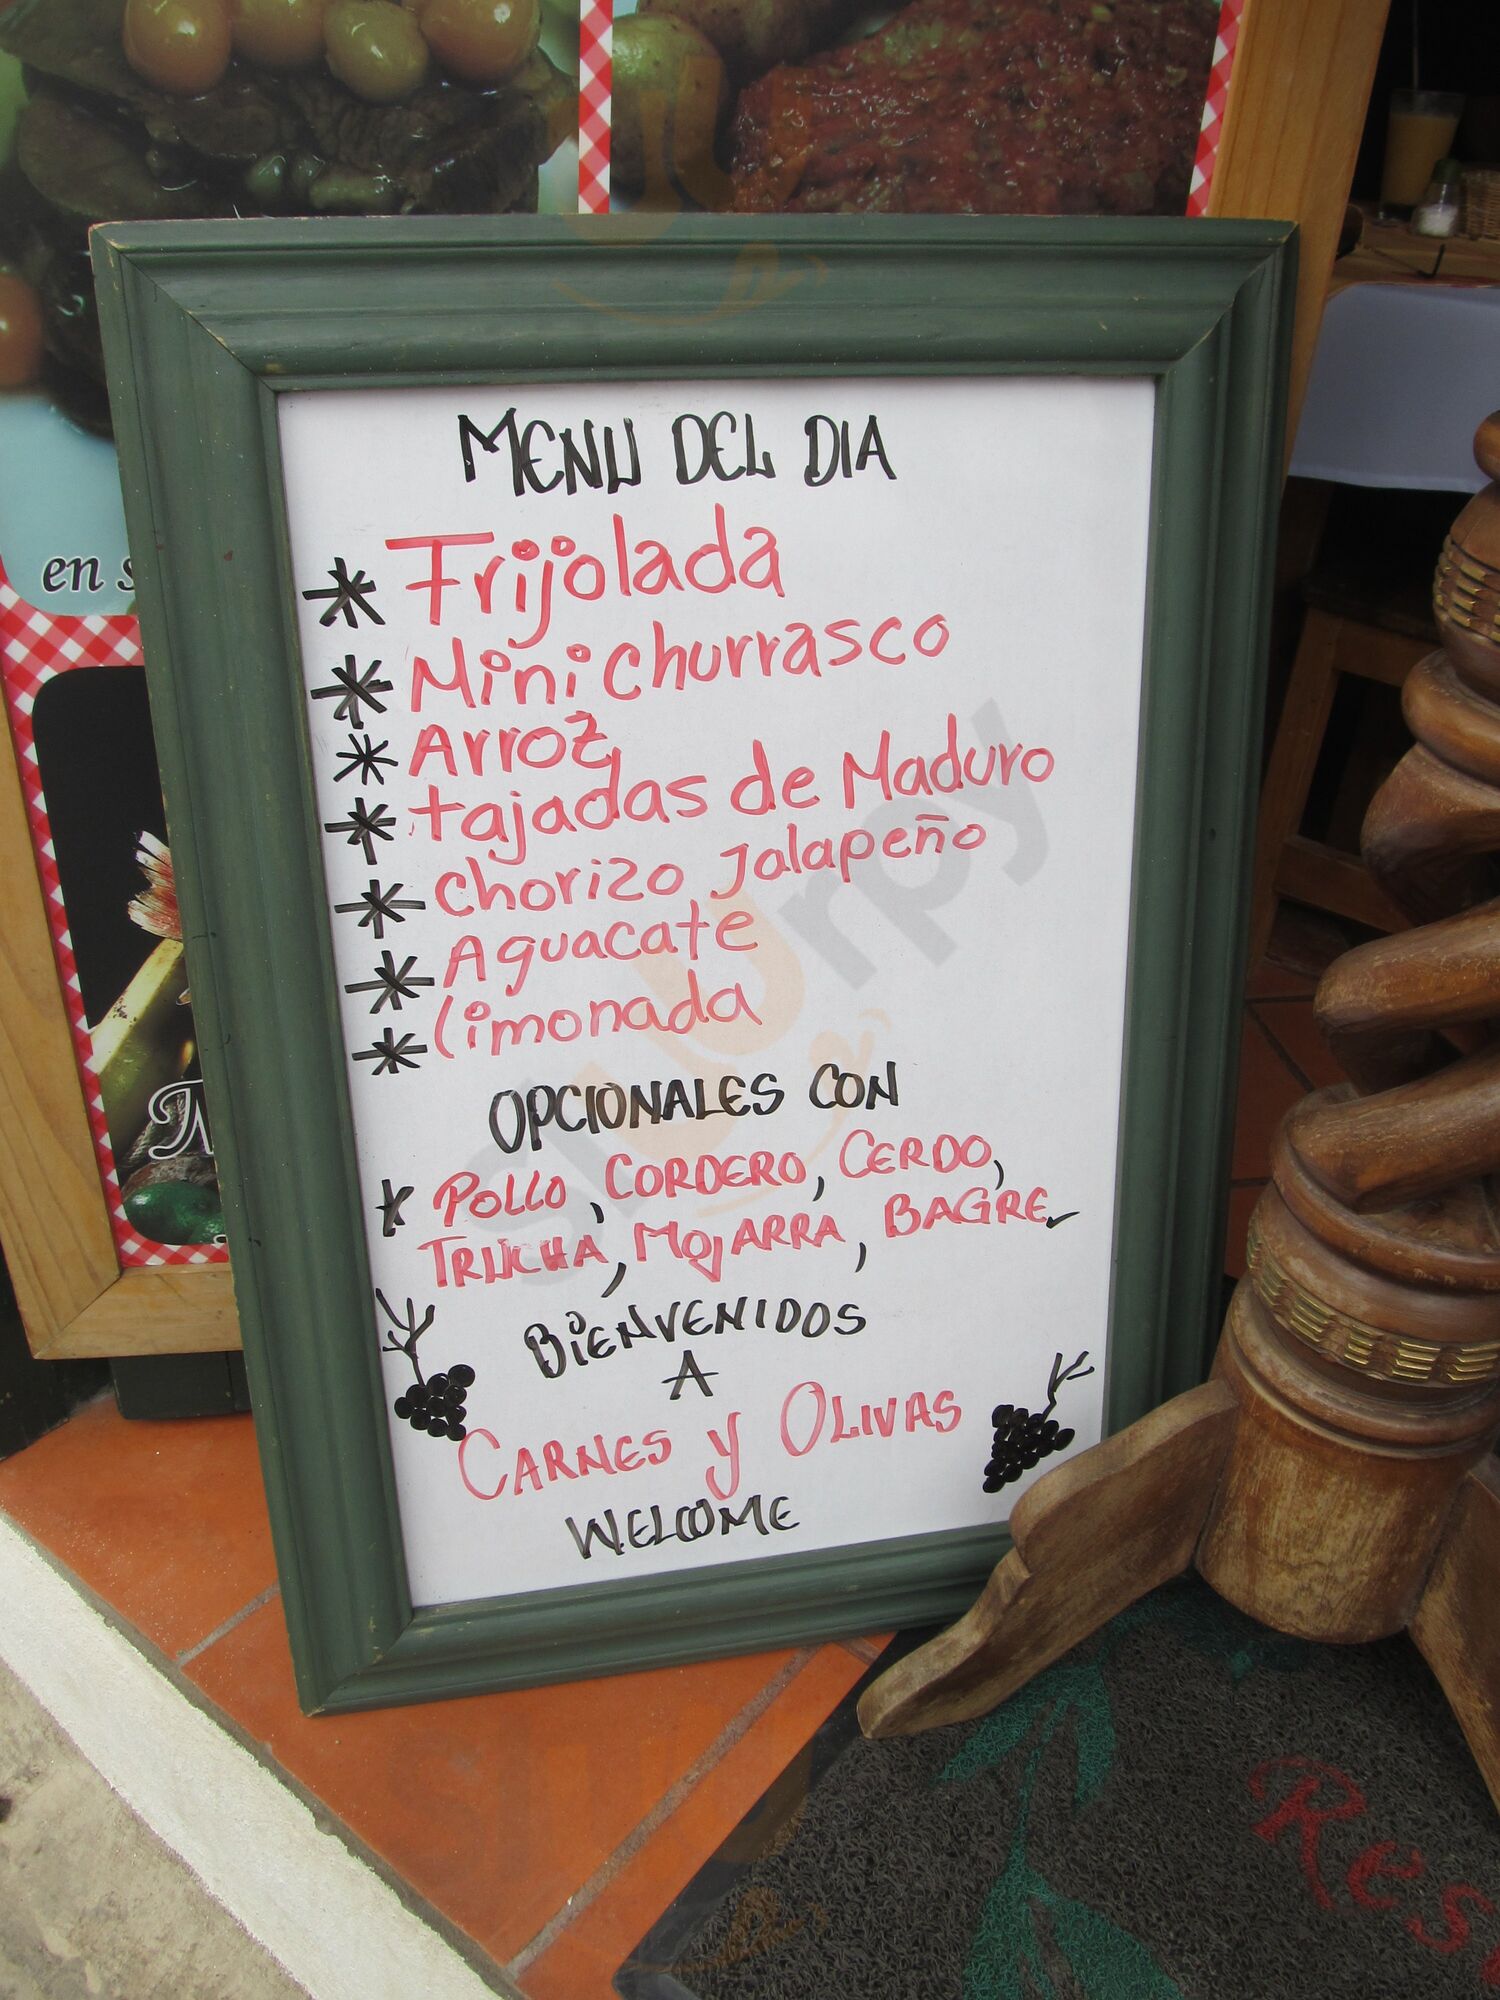 en s
MENU DEL DIA
* Frijolada
* Mini churrasco
* Arroz
* tajadas de Maduro
* chorizo jalapeño
* Aguacate
* limonada
OPCIONALES CON
* POLLO, CORDERO, CERDO,
TRUCHA, MOJARRA, BAGRE
BIENVENIDOS
A
CARNES Y OLIVAS
WELCOME
sluurpy
Res